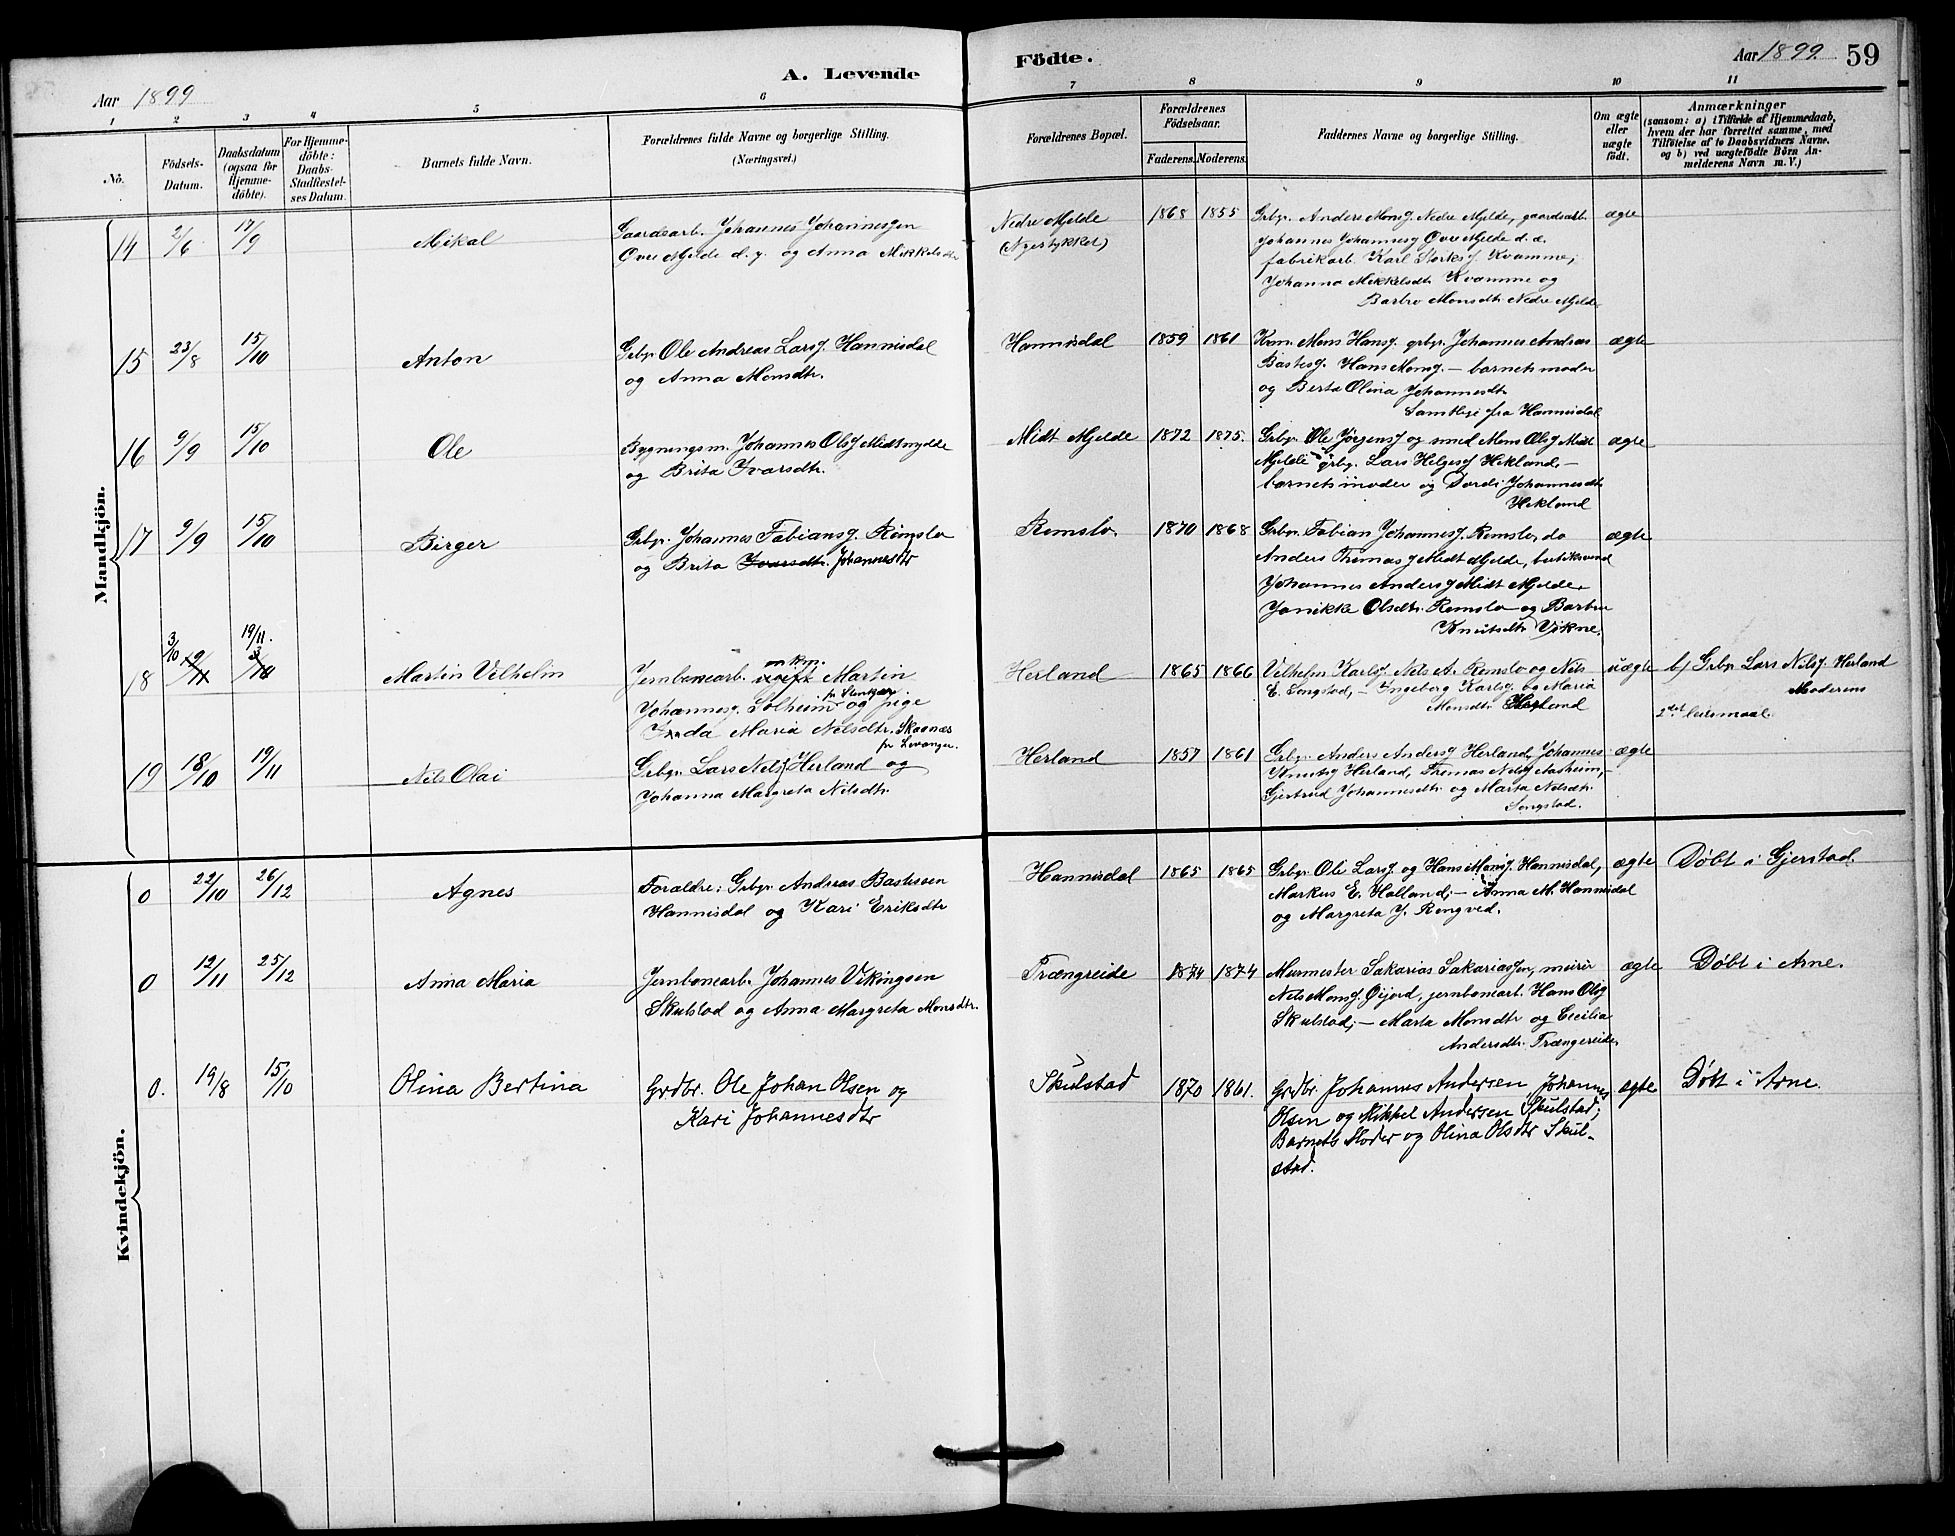 A. Levende
Fødte.
Aar 1899. 59
Aar 1899
1 2 3 4 5 6 7 8 9 10 11
No.
Födsels-Datum.
Daabsdatum (ogsaa för Hjemme-döbte).
For Hjemme-döbte: Daabs-Stadfæstel-ses Datum.
Barnets fulde Navn.
Forældrenes fulde Navne og borgerlige Stilling. (Næringsvei.)
Forældrenes Bopæl.
Forældrenes Födselsaar.
Faderens. Moderens.
Faddernes Navne og borgerlige Stilling.
Om ægte eller uægte födt.
Anmærkninger
(saasom: a) i Tilfælde af Hjemmedaab,
hvem der har forrettet samme, med
Tilföielse af to Daabsvidners Navne,
og b) ved uægtefödte Börn An-
melderens Navn m. V.)
Mandkjön.
14 2/6 17/9 Mikal
Gaardsarb. Johannes Johannessen
Øvre Mjelde d. y. og Anna Mikkelsdtr
Nedre Mjelde
(Nyestykket)
1868 1855
Grbgr. Anders Monsg. Nedre Mjelde, gaardsarb.
Johannes Johannesg Øvre Mjelde d. æ.
fabrikarb. Karl Storksg. Kvamme;
Johanna Mikkelsdtr. Kvamme og
Barbro Monsdtr. Nedre Mjelde
ægte
15 23/8 15/10 Anton
Grbgr. Ole Andreas Larsg. Hannisdal
og Anna Monsdtr.
Hannisdal 1859 1861
Mons Hansg. grbgr. Johannes Andreas
Bastesg. Hans Monsg. — barnets moder
og Berta Olina Johannesdtr.
Samtlige fra Hannisdal
ægte
16 9/9 15/10 Ole
Bygningsm. Johannes Olsg Midtmjelde
og Brita Ivarsdtr.
Midt Mjelde 1872 1875.
Grbgr. Ole Jörgensg og smed Mons Olsg Midt
Mjelde grbgr. Lars Helgesg Hekland, —
barnets moder og Dordi Johannesdtr.
Hekland
ægte
17 9/9 15/10 Birger
Grbgr. Johannes Fabiansg. Römslo
og Brita Ivarsdtr. Johannesdtr
Remslo. 1870 1868
Grbgr. Fabian Johannesg. Remslo, do
Anders Thomasg Midt Mjelde, butiksvend
Johannes Andersg Midt Mjelde.
Janikke Olsdtr. Remslo og Barbro
Knutsdtr Vikne.
ægte
18 3/10 19/11. Martin Vilhelm
Jernbanearb. Martin
Johannesg. Solheim og pige
Maria Nilsdtr. Skaanæs
fr Levanger.
Herland 1865 1866
Vilhelm Karlsg. Nels A. Remslo og Nils
E. Songstad, — Ingeborg Karlsg. og Maria
Monsdtr. Herland
uægte
b) Grbgr. Lars Nilsg. Herland
Moderens
2det leiermaal.
19 18/10 19/11 Nels Olai
Grbgr. Lars Nels. Herland og
Johanna Margreta Nilsdtr.
Herland 1857 1861
Grbgr. Anders Andersg Herland, Johannes
Knutsg Herland, Thomas Nelsg Aasheim, —
Gjertrud Johannesdtr. og Marta Nelsdtr.
Songstad.
ægte
Kvindekjön.
0 22/10 26/12 Agnes
Forældre: Grbgr. Andreas Bastesen
Hannisdal og Kari Eriksdtr
Hannisdal 1865 1865
Grbgr. Ole Larsg. og Hans Monsg. Hannisdal,
Markus E. Holland; — Anna M. Hannisdal
og Margreta J. Rengved.
ægte
Døbt i Gjerstad.
0 12/11 25/12 Anna Maria
Jernbanearb. Johannes Vikingsen
Skulstad og Anna Margreta Monsdtr.
Trængreide 1874 1874
Murmester Sakarias Sakariassen, meirer
Nels Monsg. Öijord, jernbanearb. Hans Olsg
Skulstad; — Marta Monsdtr og Cecilia
Andersdtr. Trængereide
ægte
Døbt i Arne.
0. 19/8 15/10 Olina Bertina
Grdbr. Ole Johan Olsen og
Kari Johannesdtr
Skulstad 1870 1861.
Grdbr. Johannes Andersen Johannes
Olsen og Mikkel Andersen Skulstad;
Barnets Moder og Olina Olsdtr Skul-
stad.
ægte
Døbt i Arne.